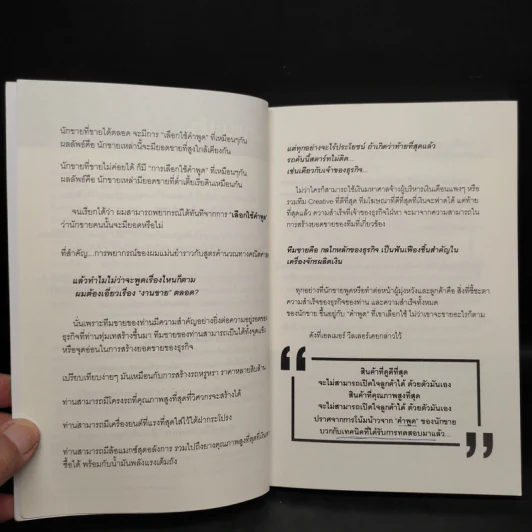 นักขายที่ขายได้ตลอด จะมีการ "เลือกใช้คำพูด" ที่เหมือนๆกัน
ผลลัพธ์คือ นักขายเหล่านี้จะมียอดขายที่สูงใกล้เคียงกัน
นักขายที่ขายไม่ค่อยได้ ก็มี "การเลือกใช้คำพูด" ที่เหมือนๆกัน
ผลลัพธ์คือ นักขายเหล่านี้มียอดขายที่ต่ำเตี้ยเรี่ยดินเหมือนกัน
จนเรียกได้ว่า ผมสามารถพยากรณ์ได้ทันทีจากการ "เลือกใช้คำพูด"
ว่านักขายคนนั้นจะมียอดหรือไม่
ที่สำคัญ...การพยากรณ์ของผมแม่นยำราวกับสูตรคำนวณทางคณิตศาสตร์
แล้วทำไมไม่ว่าจะพูดเรื่องไหนก็ตาม
ผมต้องเอี่ยวเรื่อง "งานขาย" ตลอด?
นั่นเพราะทีมขายของท่านมีความสำคัญอย่างยิ่งต่อความอยู่รอดของ
ธุรกิจที่ท่านทุ่มเทสร้างขึ้นมา ทีมขายของท่านสามารถเป็นได้ทั้งจุดแข็ง
หรือจุดอ่อนในการสร้างยอดขายของธุรกิจ
เปรียบเทียบง่ายๆ มันเหมือนกับการสร้างรถหรูหรา ราคาหลายสิบล้าน
ท่านสามารถมีโครงรถที่คุณภาพสูงที่สุดที่วิศวกรจะสร้างได้
ท่านสามารถมีเครื่องยนต์ที่แรงที่สุดใส่ไว้ใต้ฝากระโปรง
ท่านสามารถมีล้อแมกซ์สุดอลังการ รวมไปถึงยางคุณภาพสูงที่สุดที่เงิน
ซื้อได้ พร้อมกับน้ำมันพลังแรงเต็มถัง
แต่ทุกอย่างจะไร้ประโยชน์ ถ้าเกิดว่าท้ายที่สุดแล้ว
รถคันนี้สตาร์ทไม่ติด...
เช่นเดียวกับเจ้าของธุรกิจ...
ไม่ว่าใครก็สามารถใช้เงินมหาศาลจ้างผู้บริหารเงินเดือนแพงๆ หรือ
รวมทีม Creative ที่ดีที่สุด ทีมโฆษณาที่ดีที่สุดที่เงินจะหาได้ แต่ท้าย
ที่สุดแล้ว ความสำเร็จที่เจ้าของธุรกิจใฝ่หา จะมาจากความสามารถใน
การสร้างยอดขายของทีมที่เกี่ยวข้อง
ทีมขายคือ กลไกหลักของธุรกิจ เป็นฟันเฟืองชิ้นสำคัญใน
เครื่องจักรผลิตเงิน
ทุกอย่างที่นักขายพูดหรือทำต่อหน้าผู้มุ่งหวังและลูกค้าคือ สิ่งที่ชี้ชะตา
ความสำเร็จของธุรกิจของท่าน และความสำเร็จทั้งหมด
ของนักขาย ขึ้นอยู่กับ "คำพูด" ที่เขาเลือกใช้ ไม่ว่าเขาจะขายอะไรก็ตาม
ดังที่เอลเมอร์ วีลเลอร์เคยกล่าวไว้
“
สินค้าที่ดูดีที่สุด
จะไม่สามารถเปิดใจลูกค้าได้ ด้วยตัวมันเอง
สินค้าที่คุณภาพสูงที่สุด
จะไม่สามารถเปิดใจลูกค้าได้ ด้วยตัวมันเอง
ปราศจากการโน้มน้าวจาก "คำพูด" ของนักขาย
บวกกับเทคนิคที่ได้รับการทดสอบมาแล้ว...
”